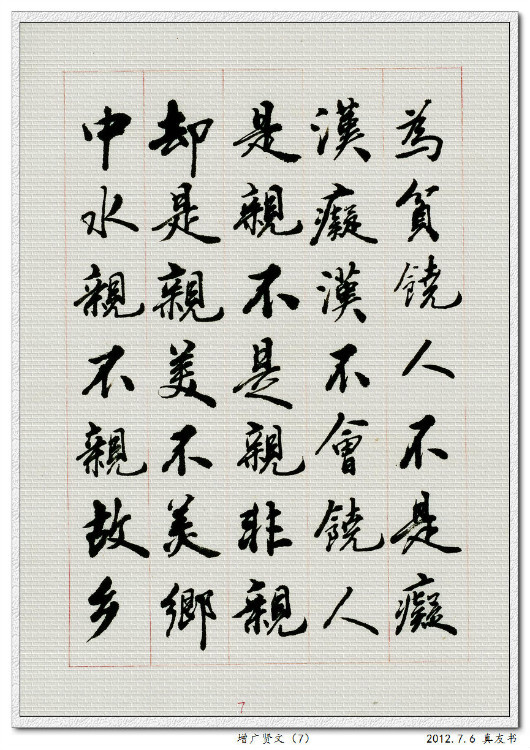 為貧饒人不是癡
漢癡漢不會饒人
是親不是親非親
却是親美不美鄉
中水親不親故乡
7
增广贤文（7）
2012.7.6 真友书